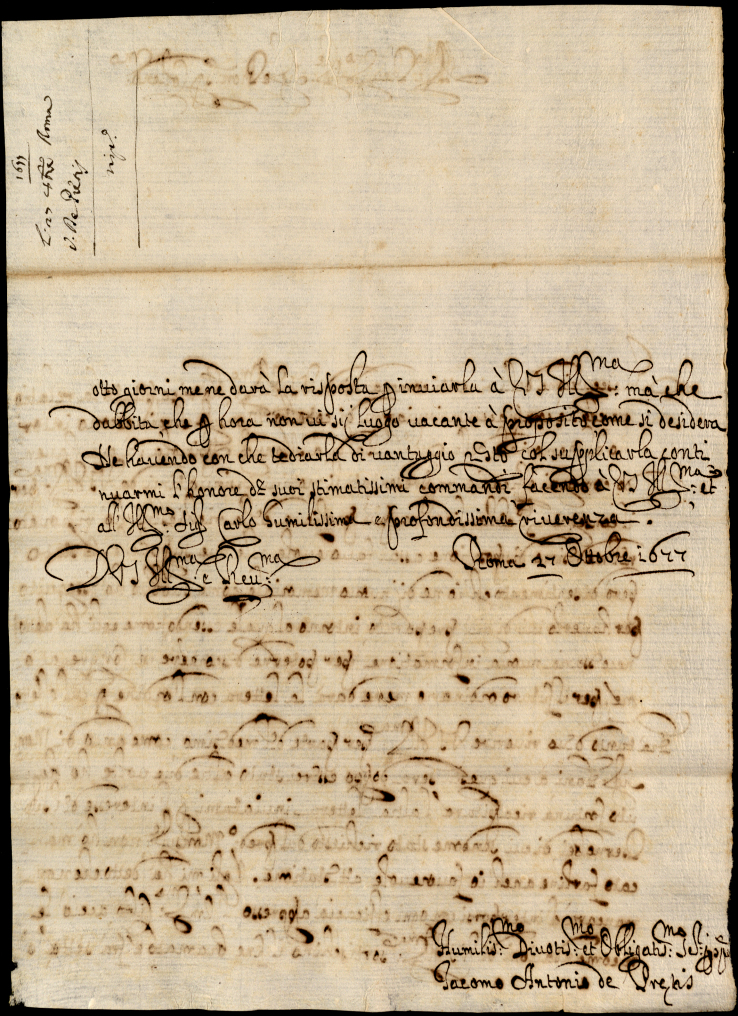 1677
27 8bre Roma
De Pretis
risp.
otto giorni me ne darà la risposta p inviarla à V S Ill:ma mà che
dubbita, che p hora non vi sij luogo vacante à proposito come si desidera
Ne havendo con che tediarla di vantaggio resto col supplicarla conti
nuarmi l'honore de suoi stimatissimi commandi facendo à V S Ill:ma et
all' Ill:mo Sig Carlo humilissima e profondissima riverenza.
Roma 27 Ottobre 1677
D V S Ill:ma e Rev:ma
Humilis:mo Divotis:mo et Obligatis:mo
Jacomo Antonio de Pretis